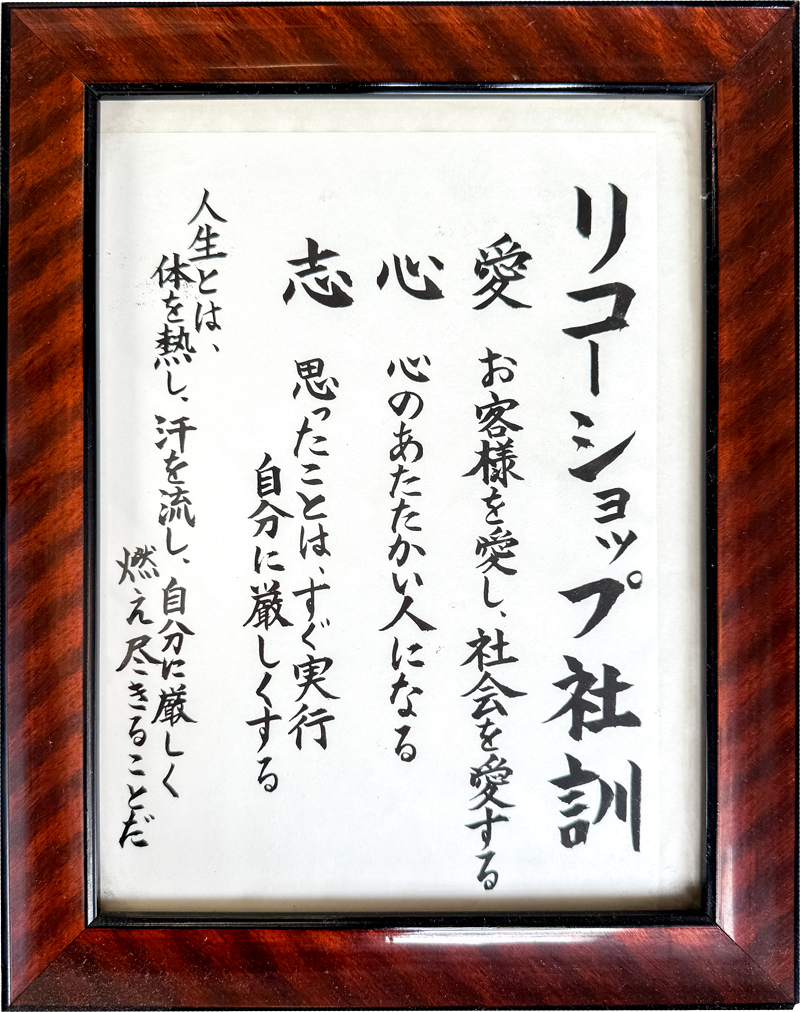 リコーショップ社訓
愛 お客様を愛し、社会を愛する
心 心のあたたかい人になる
志 思ったことは、すぐ実行
自分に厳しくする
人生とは、
体を熱し、汗を流し、自分に厳しく
燃え尽きることだ